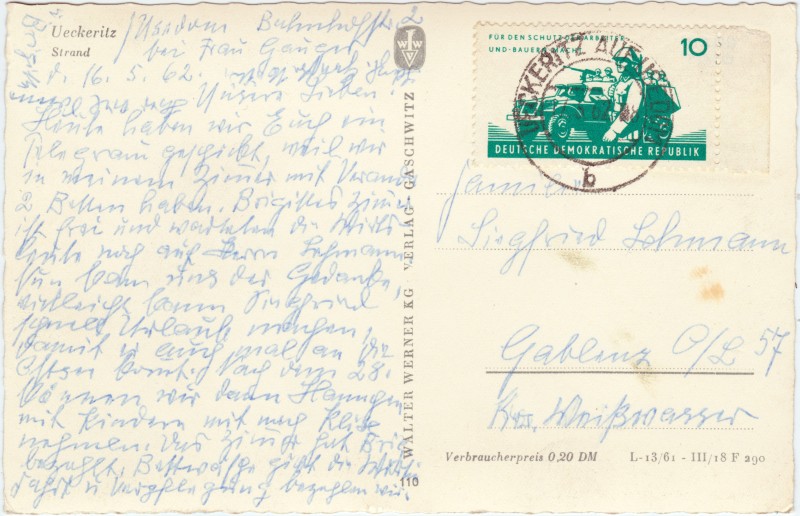 Ueckeritz
Strand
Usedom Bahnhofstr. 2
bei Frau Gauger
d. 16.5.62.
Unsere Lieben!
Heute haben wir Euch ein
Telegram geschickt, weil wir
in meinem Zimmer mit Veranda
Betten haben. Brigittes Zimmer
ist frei und warteten die Wirts
leute noch auf Herrn Lohmann
Nun kam uns der Gedanke,
vielleicht kann Siegfried
schnell Urlaub machen,
damit er auch mal an die
Ostsee kommt. Nach dem 28.
können wir dann
mit Kindern mit nach
nehmen. Das Zimmer hat
bezahlt, Bettwäsche gibt die
Fahrt u Verpflegung bezahlen wir.
WALTER WERNER KG VERLAG - GASCHWITZ
110
FÜR DEN SCHUTZ DER ARBEITER-
UND-BAUERN-MACHT
10
DEUTSCHE DEMOKRATISCHE REPUBLIK
UECKERITZ AUF USEDOM
b
Familie
Siegfried Lohmann
Gablenz O/L 57
Krs. Weißwasser
Verbraucherpreis 0,20 DM L-13/61 - III/18 F 290